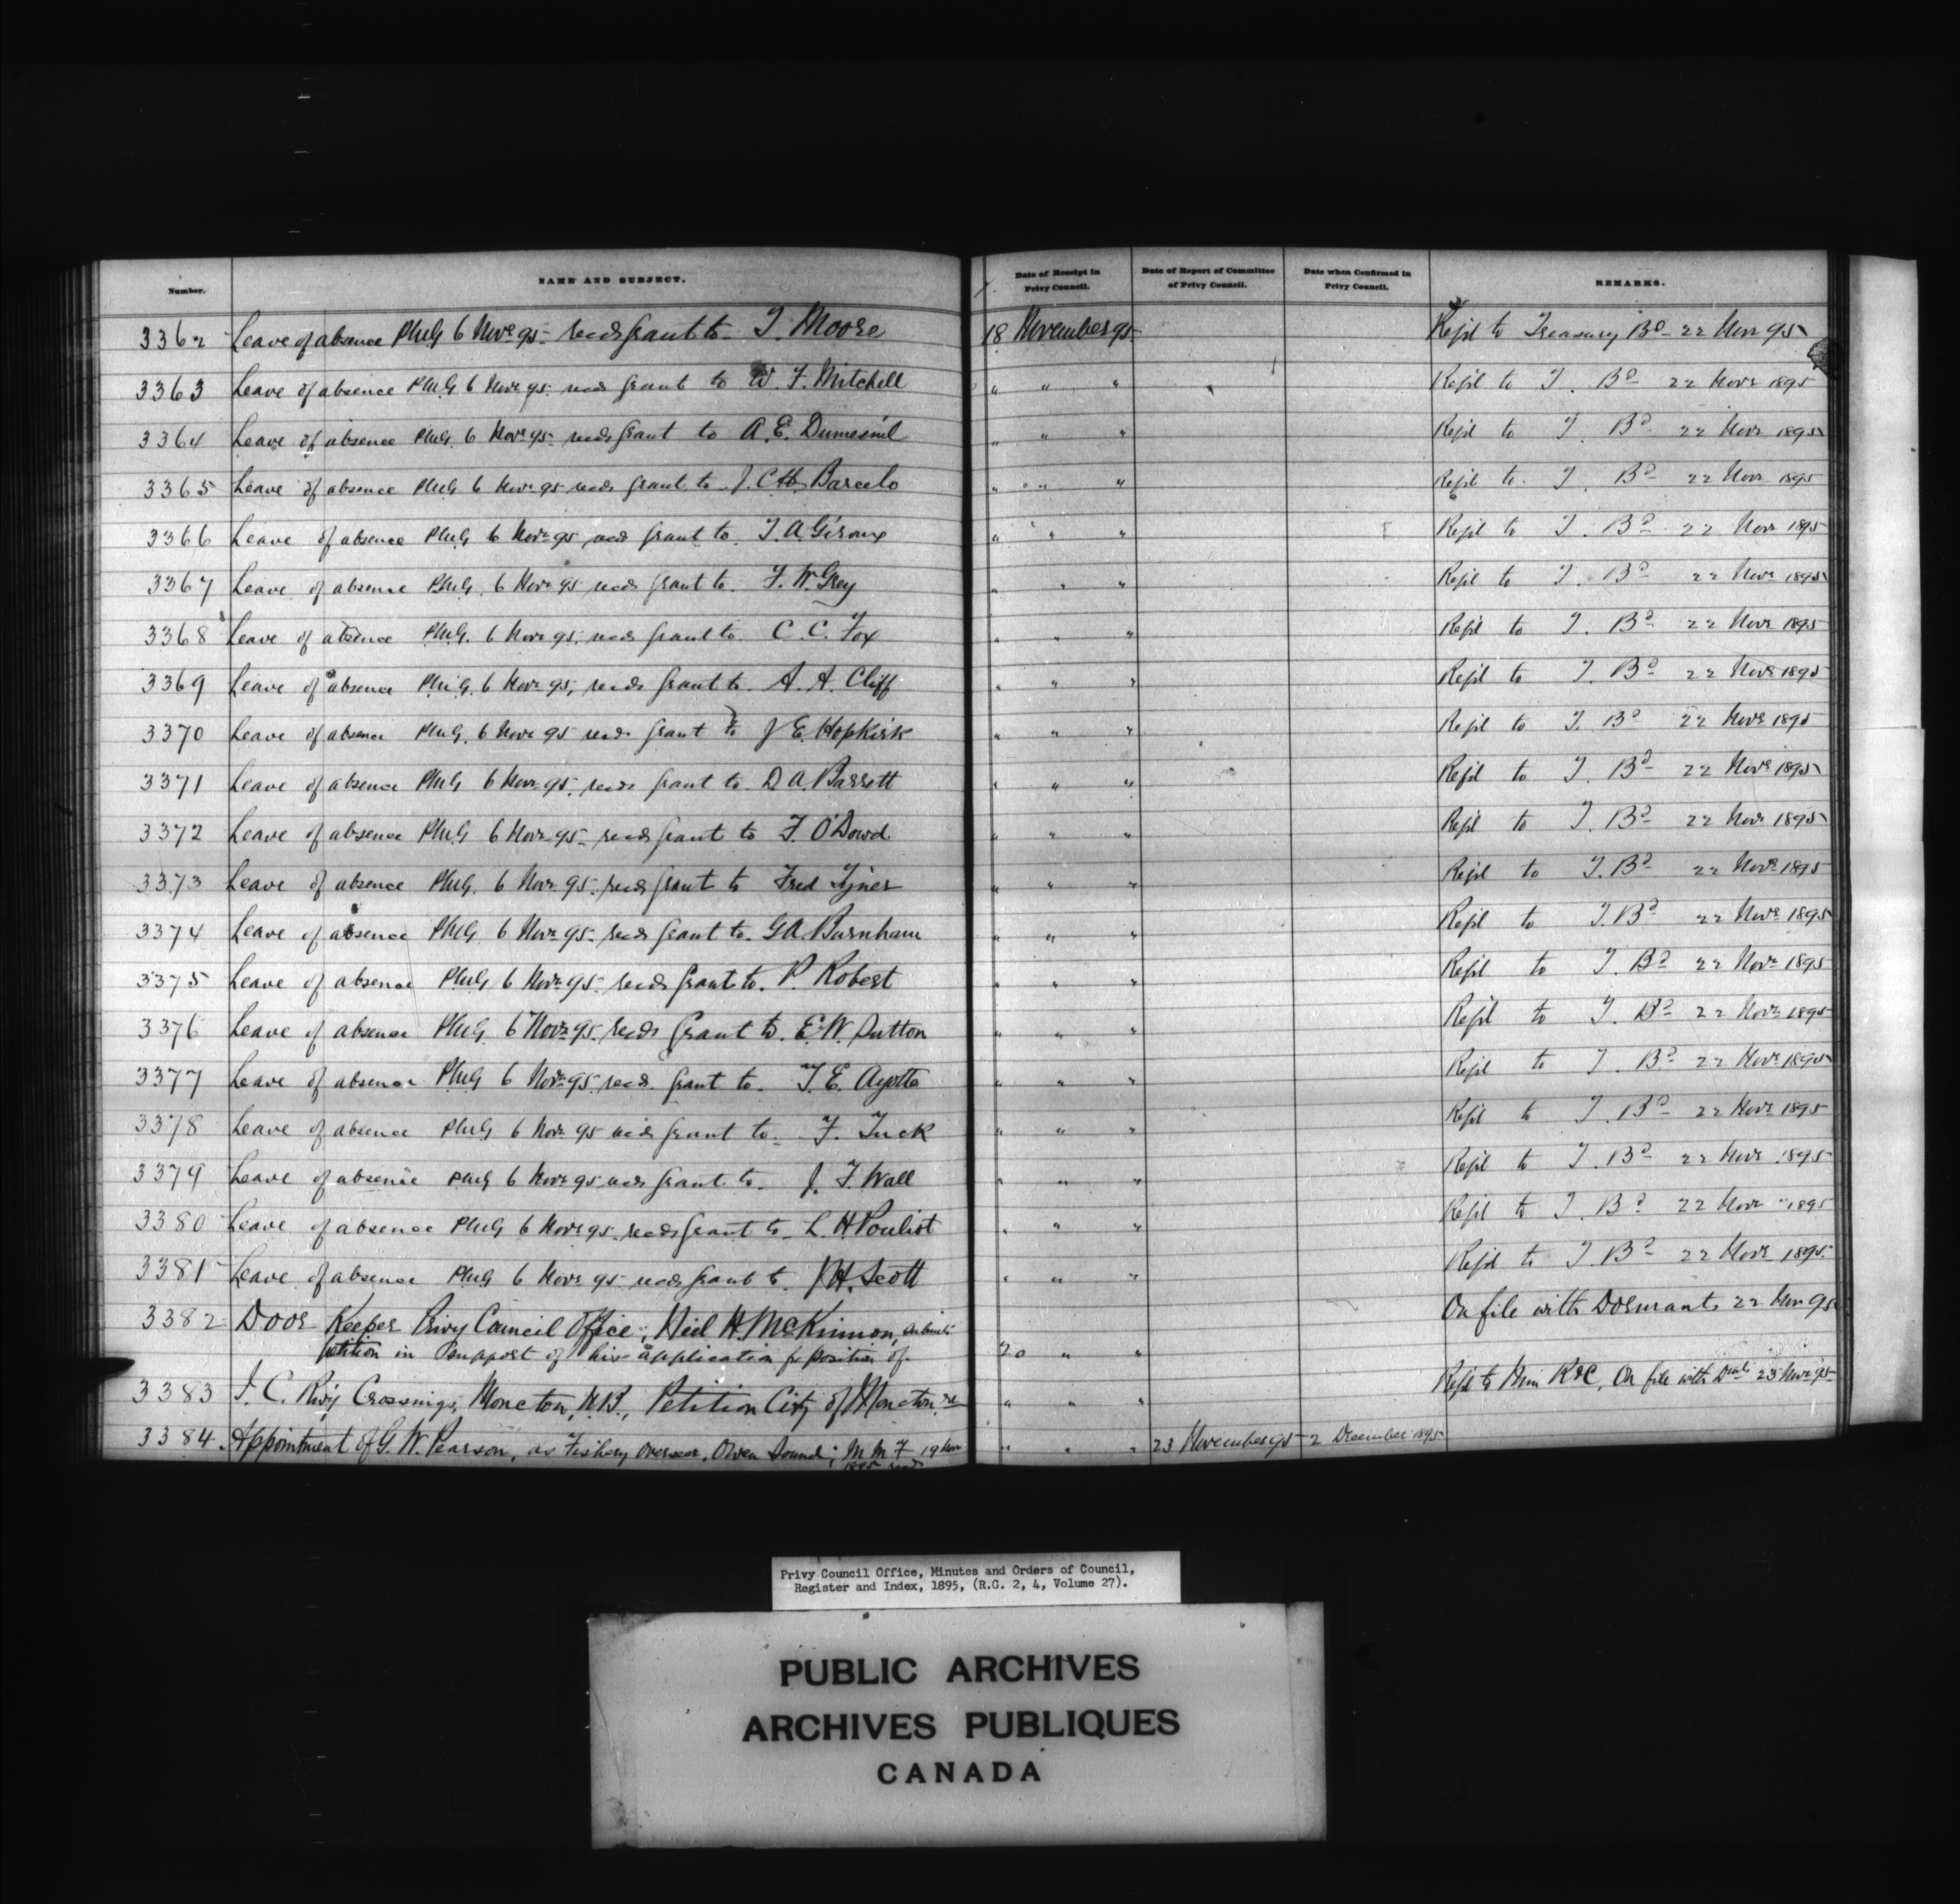 Number. NAME AND SUBJECT. Date of Receipt in Privy Council. Date of Report of Committee of Privy Council. Date when Confirmed in Privy Council. REMARKS.
3362 Leave of absence PMG 6 Novr 95 recds grant to T. Moore 18 November 95 Refd to Treasury Bd 22 Nov 95
3363 Leave of absence PMG 6 Novr 95 recds grant to W. F. Mitchell " " " Refd to T. Bd 22 Novr 1895
3364 Leave of absence PMG 6 Novr 95 recds grant to A. E. Dumesnil " " " Refd to T. Bd 22 Novr 1895
3365 Leave of absence PMG 6 Novr 95 recds grant to J. C. H. Barcelo " " " Refd to T. Bd 22 Novr 1895
3366 Leave of absence PMG 6 Novr 95 recds grant to T. A. Giroux " " " Refd to T. Bd 22 Novr 1895
3367 Leave of absence PMG 6 Novr 95 recds grant to F. W. Grey " " " Refd to T. Bd 22 Novr 1895
3368 Leave of absence PMG 6 Novr 95 recds grant to C. C. Fox " " " Refd to T. Bd 22 Novr 1895
3369 Leave of absence PMG 6 Novr 95 recds grant to A. A. Cliff " " " Refd to T. Bd 22 Novr 1895
3370 Leave of absence PMG 6 Novr 95 recds grant to J E. Hopkirk " " " Refd to T. Bd 22 Novr 1895
3371 Leave of absence PMG 6 Novr 95 recds grant to D A. Barrett " " " Refd to T. Bd 22 Novr 1895
3372 Leave of absence PMG 6 Novr 95 recds grant to F. O'Dowd " " " Refd to T. Bd 22 Novr 1895
3373 Leave of absence PMG 6 Novr 95 recds grant to Fred Tyner " " " Refd to T. Bd 22 Novr 1895
3374 Leave of absence PMG 6 Novr 95 recds grant to G A. Burnham " " " Refd to T. Bd 22 Novr 1895
3375 Leave of absence PMG 6 Novr 95 recds grant to P. Robert " " " Refd to T. Bd 22 Novr 1895
3376 Leave of absence PMG 6 Novr 95 recds grant to E. W. Sutton " " " Refd to T. Bd 22 Novr 1895
3377 Leave of absence PMG 6 Novr 95 recds grant to T. E. Ayotte " " " Refd to T. Bd 22 Novr 1895
3378 Leave of absence PMG 6 Novr 95 recds grant to F. Tuck " " " Refd to T. Bd 22 Novr 1895
3379 Leave of absence PMG 6 Novr 95 recds grant to J. F. Wall " " " Refd to T. Bd 22 Novr 1895
3380 Leave of absence PMG 6 Novr 95 recds grant to L. H Pouliot " " " Refd to T. Bd 22 Novr 1895
3381 Leave of absence PMG 6 Novr 95 recds grant to J H. Scott " " " Refd to T. Bd 22 Novr 1895
3382 Door Keeper Privy Council Office; Neil H. McKinnon, submits On file with Dormants 22 Nov 95
petition in support of his application for position of 20 " "
3383 I. C. Rwy Crossings, Moncton, N.B., Petition City of Moncton, re " " " Refd to Min R&C, On file with 23 Novr 95
3384 Appointment of G. W. Pearson, as Fishery Overseer, Owen Sound; M M F 19 Nov " " " 23 November 95 2 December 1895
1895 recds
Privy Council Office, Minutes and Orders of Council,
Register and Index, 1895, (R.G. 2, 4, Volume 27).
PUBLIC ARCHIVES
ARCHIVES PUBLIQUES
CANADA